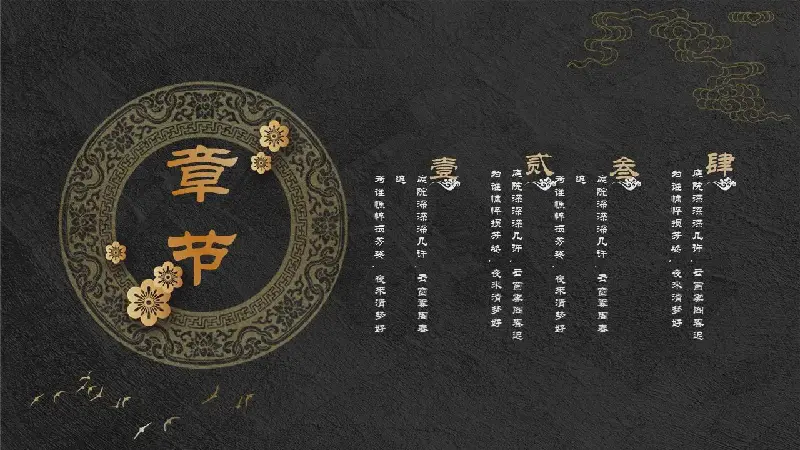 章节
壹
庭院深深深几许，云窗雾阁春
迟
为谁憔悴损芳姿，夜来清梦好
贰
庭院深深深几许，云窗雾阁春迟
为谁憔悴损芳姿，夜来清梦好
叁
庭院深深深几许，云窗雾阁春
迟
为谁憔悴损芳姿，夜来清梦好
肆
庭院深深深几许，云窗雾阁春迟
为谁憔悴损芳姿，夜来清梦好